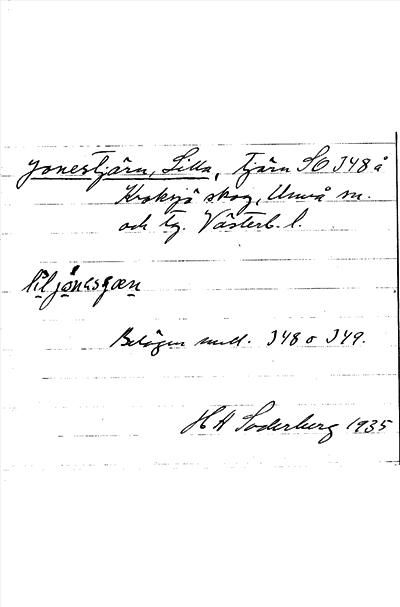 Jonestjärn, Lilla, Tjärn SO 348 å
Kroksjö skog, Umeå sn.
och tg. Västerb. l.
lìljónesɟœn
Belägen mell. 348 o 349.
H A Söderberg 1935